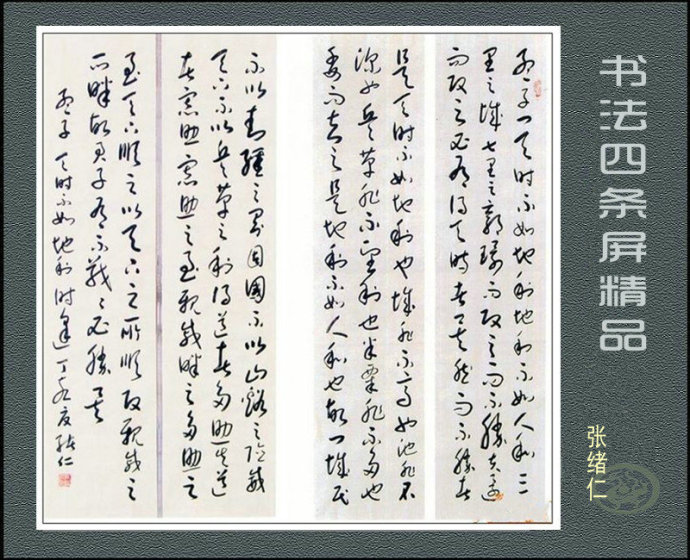 孟子一天时不如地利地利不如人和三
里之城七里之郭環而攻之而不勝夫環
而攻之必有得天时者矣然而不勝者
是天时不如地利也城非不高也池非不
深也兵革非不堅利也米粟非不多也
委而去之是地利不如人和也故曰域民
不以封疆之界固國不以山谿之险威
天下不以兵革之利得道者多助失道
者寡助寡助之至親戚畔之多助之
至天下順之以天下之所順攻親戚之
所畔故君子有不戰戰必勝矣
孟子天时不如地利时逢丁亥夏绪仁
书法四条屏精品
张绪仁